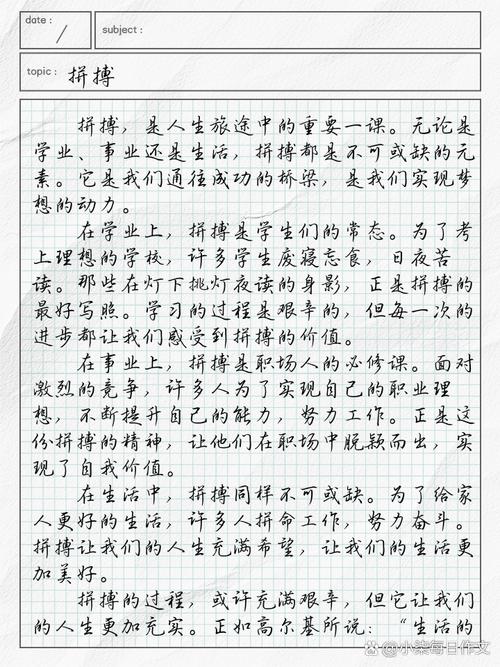 date:
subject:
topic: 拼搏
拼搏，是人生旅途中的重要一课。无论是
学业、事业还是生活，拼搏都是不可或缺的元
素。它是我们通往成功的桥梁，是我们实现梦
想的动力。
在学业上，拼搏是学生们的常态。为了考
上理想的学校，许多学生废寝忘食，日夜苦
读。那些在灯下挑灯夜读的身影，正是拼搏的
最好写照。学习的过程是艰辛的，但每一次的
进步都让我们感受到拼搏的价值。
在事业上，拼搏是职场人的必修课。面对
激烈的竞争，许多人为了实现自己的职业理
想，不断提升自己的能力，努力工作。正是这
份拼搏的精神，让他们在职场中脱颖而出，实
现了自我价值。
在生活中，拼搏同样不可或缺。为了给家
人更好的生活，许多人拼命工作，努力奋斗。
拼搏让我们的人生充满希望，让我们的生活更
加美好。
拼搏的过程，或许充满艰辛，但它让我们
的人生更加充实。正如高尔基所说：“生活的
小柒每日作文